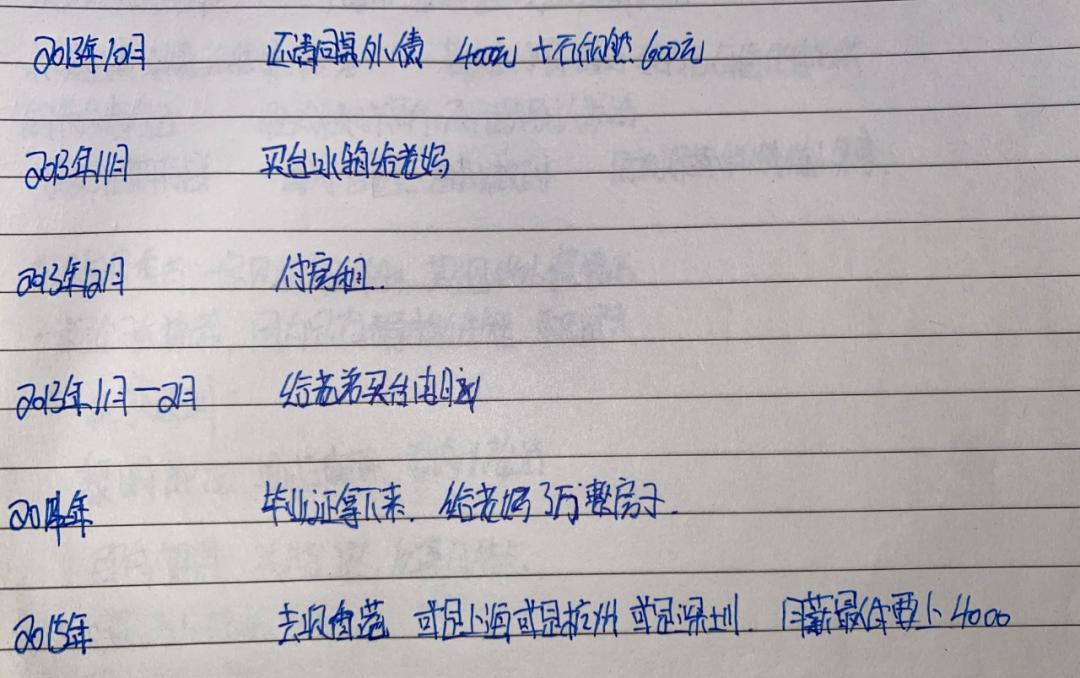 2013年10月 还清回家外债 400元 + 600元
2013年11月 买台冰箱给老妈
2013年12月 付房租.
2013年11月一2月 给老弟买台电脑
2014年 毕业证拿下来. 给老妈3万整房子.
2015年 去 或是上海或是杭州 或是深圳. 月薪最低要上4000